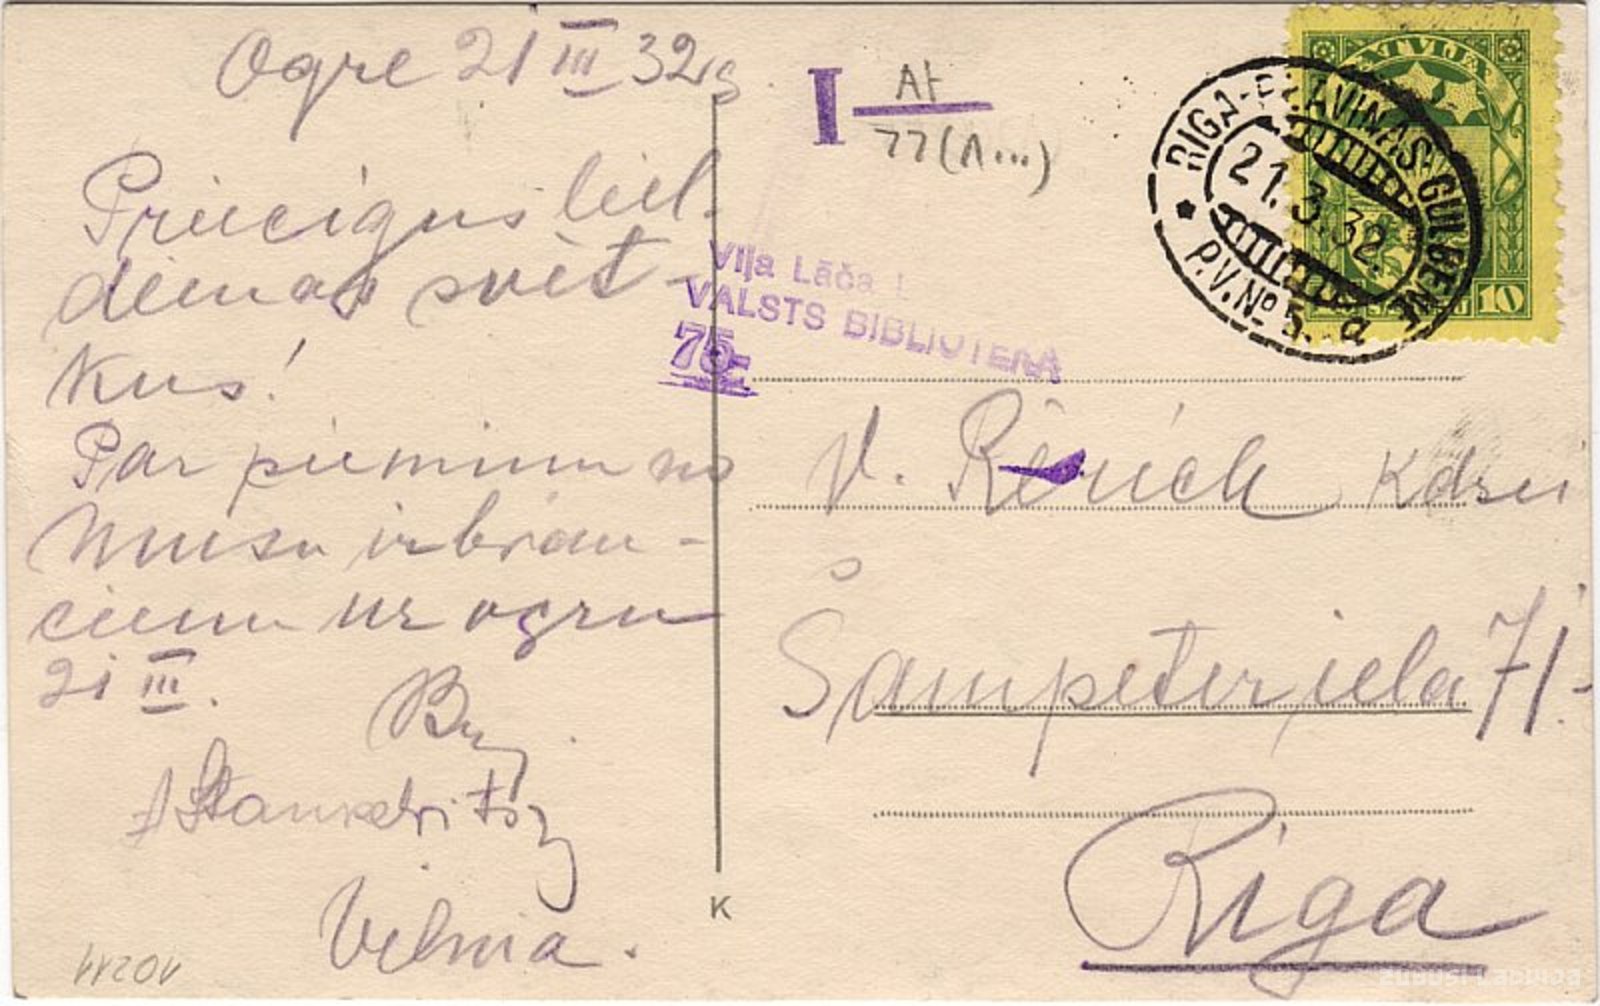 Ogre 21 III 32 g
Priecīgus liel-
dienas svēt-
kus!
Par piemiņu no
Mūsu izbrau-
cienu uz ogru
21 III.
Vilnia.
10211
K
I At
77(A...)
Viļa Lāča L
VALSTS BIBLIOTĒKA
75-
LATVIJA
10
RIGA-PĻAVIŅAS-GULBENE
21.3.32.
P.V. № 5. a
V. Rērich kdzei
Šampēteŗ iela 71-
Riga
zudusi Latvija